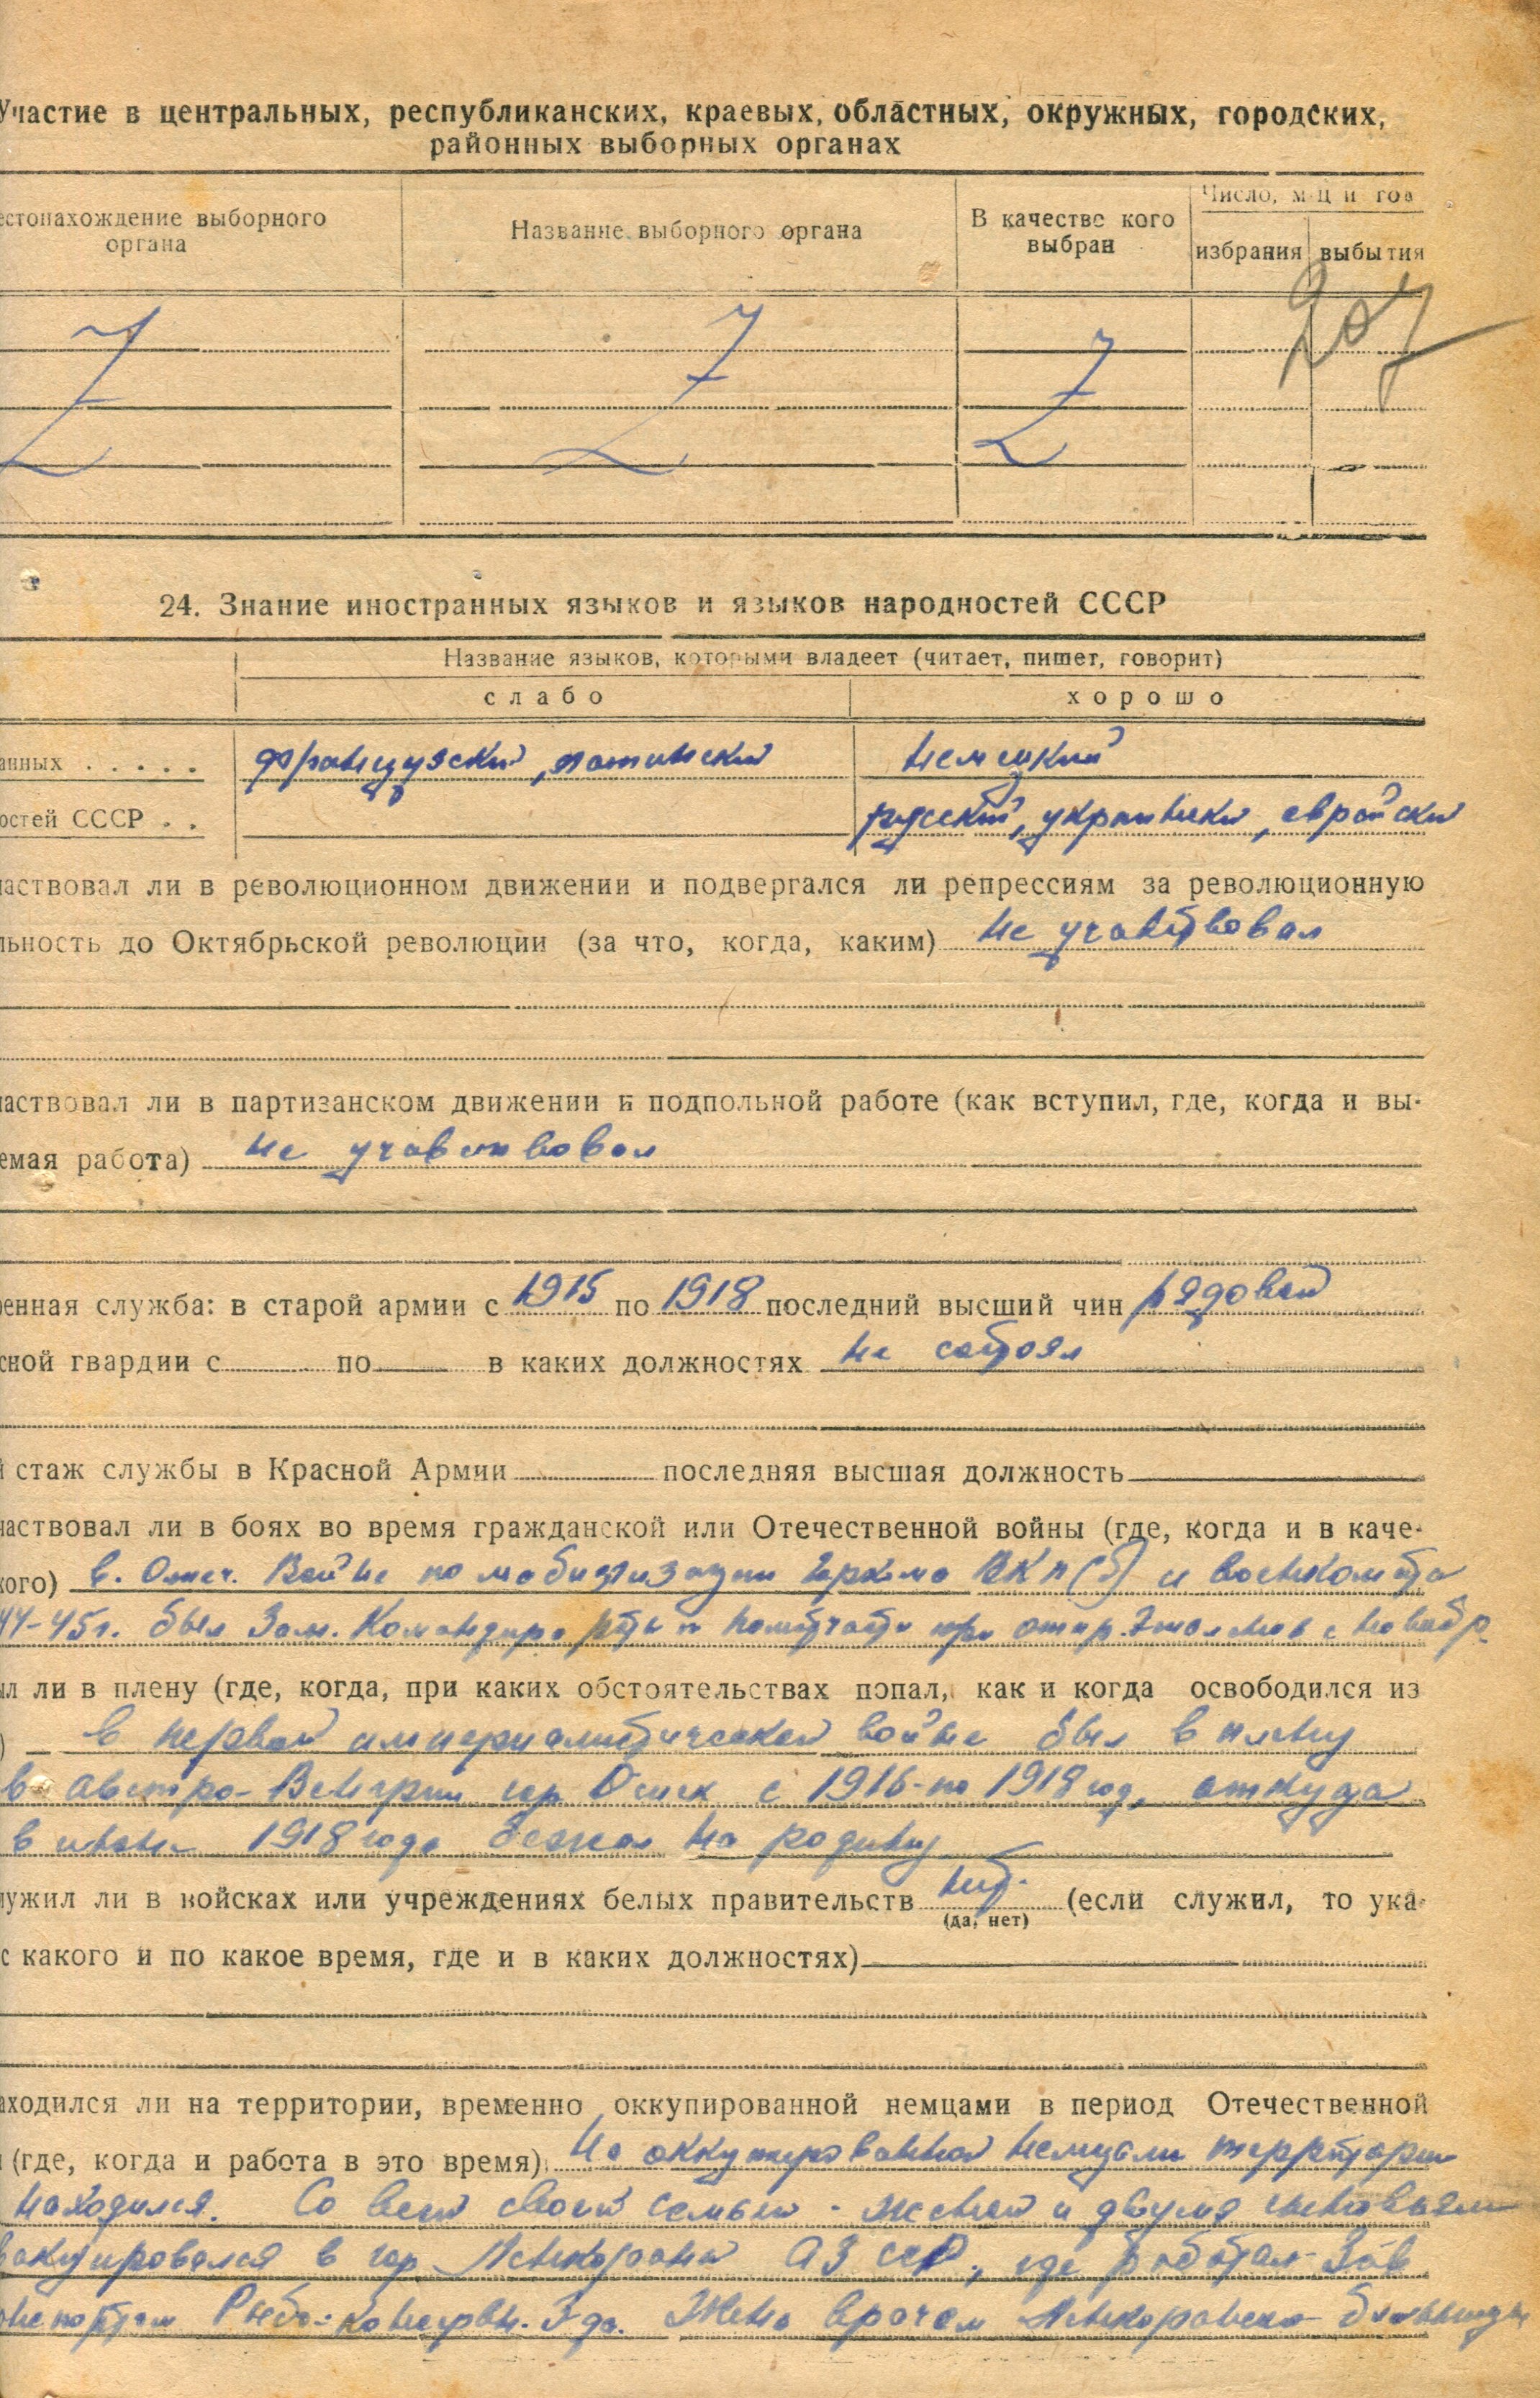 Участие в центральных, республиканских, краевых, областных, окружных, городских,
районных выборных органах
естонахождение выборного
органа
Название выборного органа
В качестве кого
выбран
Число, м-ц и год
избрания
выбытия
207
Z Z Z
24. Знание иностранных языков и языков народностей СССР
Название языков, которыми владеет (читает, пишет, говорит)
слабо
хорошо
анных . . . . . французский, латинский немецкий
остей СССР . . русский, украински, еврейски
аствовал ли в революционном движении и подвергался ли репрессиям за революционную
льность до Октябрьской революции (за что, когда, каким) не участвовал
аствовал ли в партизанском движении и подпольной работе (как вступил, где, когда и вы-
емая работа) не учавствовал
енная служба: в старой армии с 1915 по 1918 последний высший чин рядовой
сной гвардии с по в каких должностях не состоял
й стаж службы в Красной Армии последняя высшая должность
аствовал ли в боях во время гражданской или Отечественной войны (где, когда и в каче-
кого) в. Отеч. Войне по мобилизации ВКП(б) и военкомата
44-45г. был Зам. Командира роты п
ыл ли в плену (где, когда, при каких обстоятельствах попал, как и когда освободился из
) в первой империалистической войне был в плену
в Австро-Венгрии гор. Осиек с 1916-по 1918 год, откуда
в июне 1918 года бежал на родину
лужил ли в войсках или учреждениях белых правительств нет. (если служил, то ука-
(да, нет)
с какого и по какое время, где и в каких должностях)
аходился ли на территории, временно оккупированной немцами в период Отечественной
(где, когда и работа в это время) На оккупированной немцами территории
находился. Со всей своей семьей - женой и двумя сыновьями
вакуировался в гор Ленкорань АЗ ССР, где работал Зав
Рыбо-консервн. З-да. Жена врачем Ленкоранско больницы